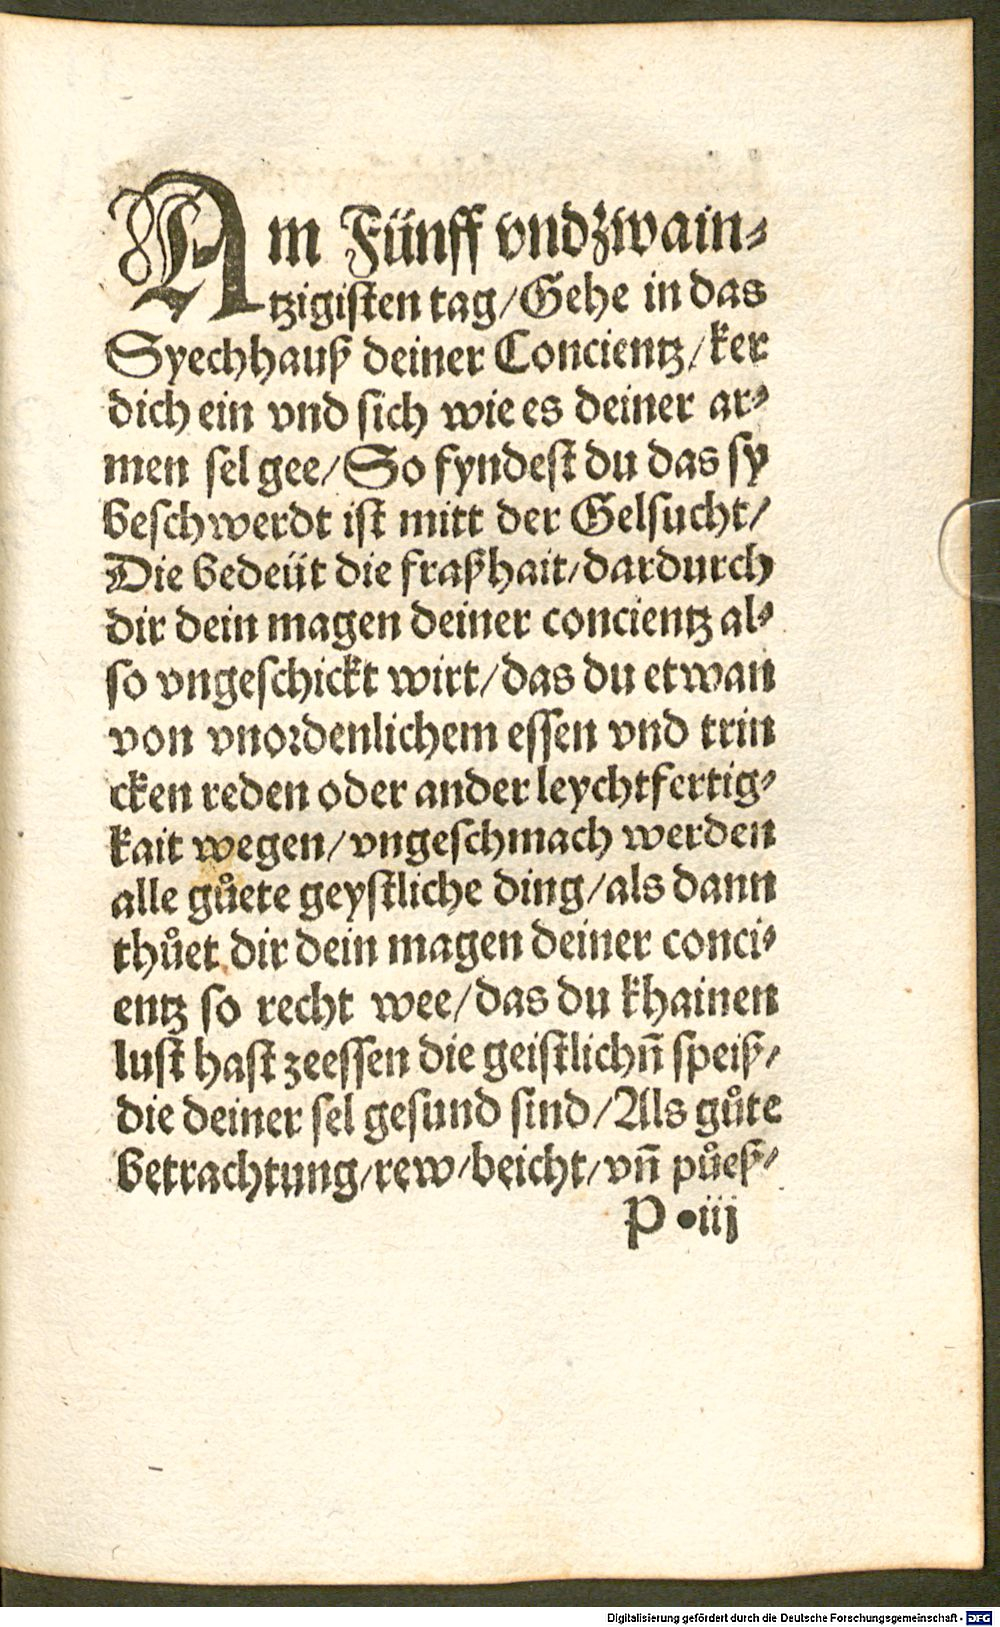 Am Fünff vndzwain⸗
tzigisten tag/Gehe in das
Syechhauß deiner Concientz/ker
dich ein vnd sich wie es deiner ar⸗
men sel gee/So fyndest du das sy
beschwerdt ist mitt der Gelsucht/
Die bedeüt die fraßhait/dardurch
dir dein magen deiner concientz al⸗
so vngeschickt wirt/das du etwan
von vnordenlichem essen vnd trin
cken reden oder ander leychtfertig⸗
kait wegen/vngeschmach werden
alle gůete geystliche ding/als dann
thůet dir dein magen deiner conci⸗
entz so recht wee/das du khainen
lust hast zeessen die geistlichñ speiß/
die deiner sel gesund sind/Als gůte
betrachtung/rew/beicht/vñ půeß/
P •iij
Digitalisierung gefördert durch die Deutsche Forschungsgemeinschaft - DFG